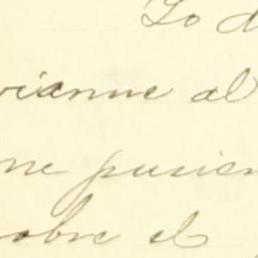 Lo d
vianne al
ne pusien
sobre el